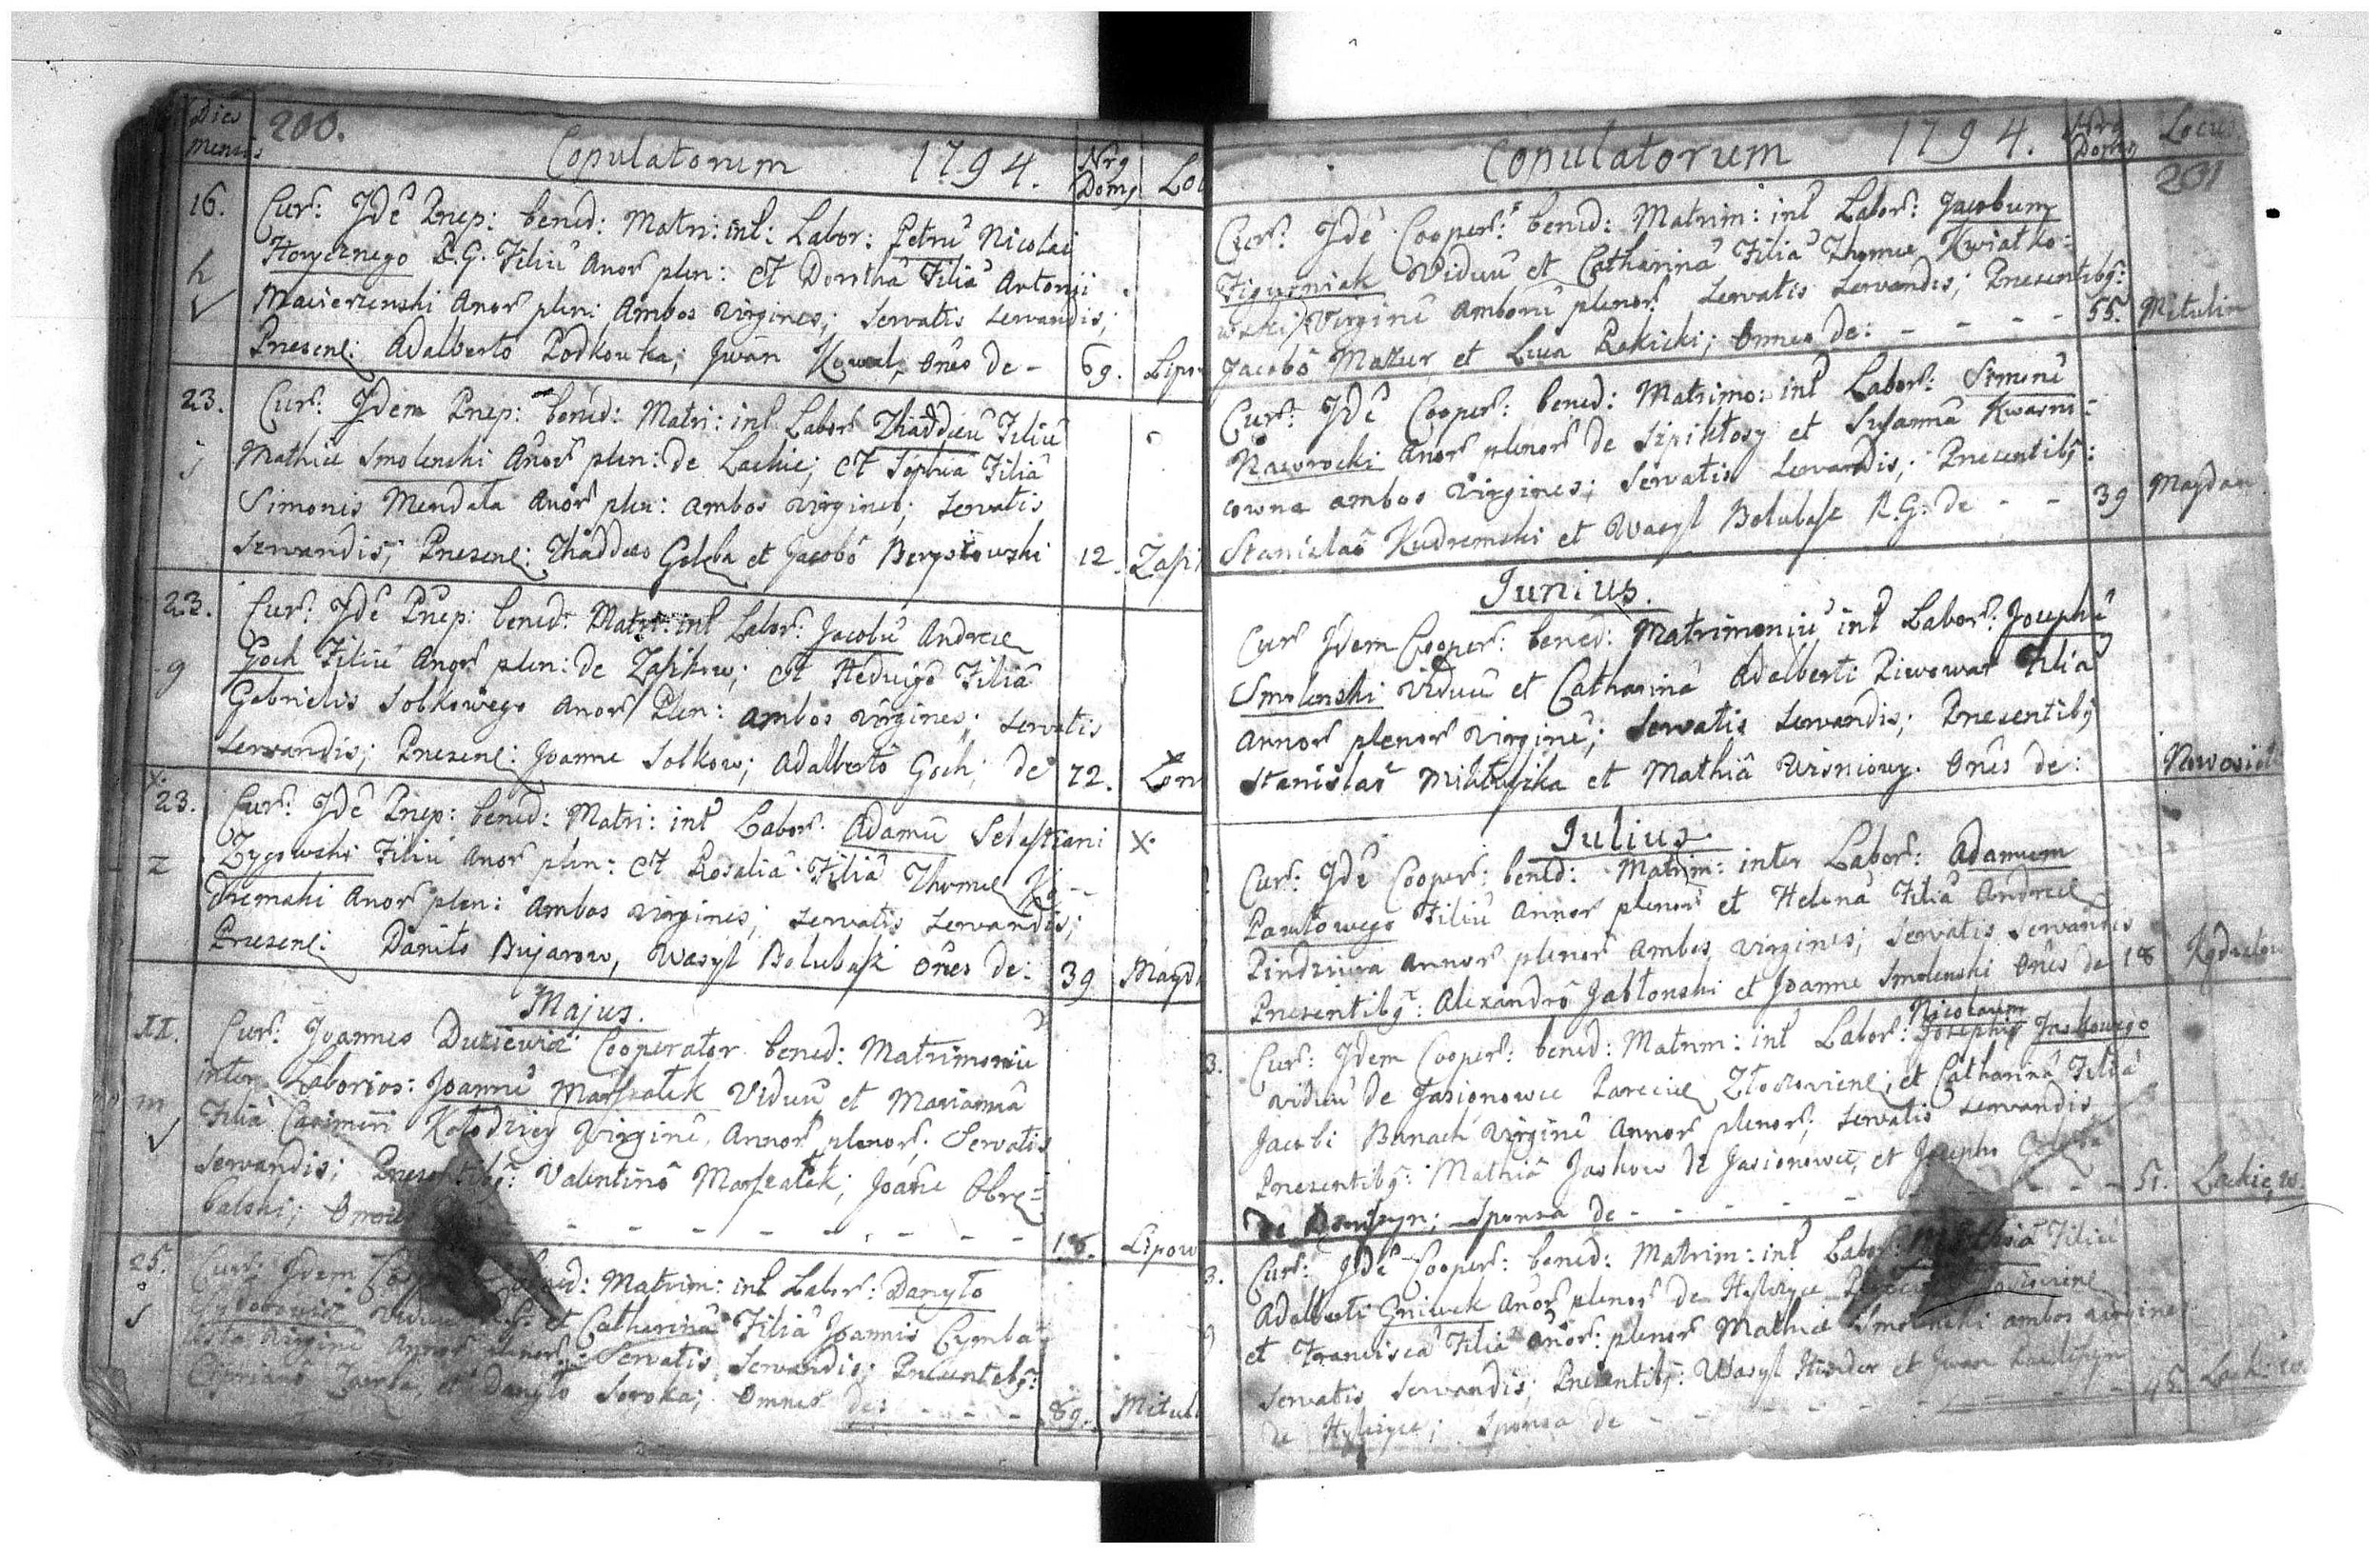 Dies mensis
200.
Copulatorum 1794.
Nrg Domg
16.
Cur: Idẽ Prep: bened: Matri: int: Labor: Petrũ Nicolai
Horycznego R.G. Filiũ Anor plen: et Dorothã Filiã Antonii
h
Macierzenski Anor plen: Ambos Virgines; Servatis servandis;
Presen: Adalberto Podkowka; Jwan Kowal, õnes de -
69.
23.
Cur: Idem Prep: bened: Matri: int Labor Thaddeũ Filiũ
Mathiæ Smolenski Anor plen: de Lackie; et Sophia Filiã
j
Simonis Mendala Anor plen: ambos virgines; servatis
servandis; Presen: Thaddeo Geleta et Jacobõ
12.
23.
Cur: Idẽ Prep: bened: Matri: int Labor: Jacobũ Andreæ
Goch Filiũ Anor plen: de Zapikow; et Hedvigẽ Filiã
g
Gabrielis Solkowego Anor Plen: ambos virgines; servatis
servandis; Presen: Joanne Solkow; Adalbertõ Goch; de
72.
x.
23.
Cur: Idẽ Prep: bened: Matri: int Labor: Adamũ Sebastiani
x.
Zygowski Filiũ Anor plen: et Rosaliã Filiã Thomæ Ku--
z
dremski Anor plen: Ambos virgines; servatis servandis;
Presen: Daniło Bujarow, Wasyl Bolubasz õnes de:
39
Majd
Majus.
II.
Cur: Joannes Duziewicz Cooperator bened: Matrimoniũ
inter Laborios: Joannẽ Marszałek Viduũ et Mariannã
m
Filiã Casimiri Kołodziey Virginẽ, Annor plenor; Servatis
servandis; Presentibg: Valentinõ Marszałek; Joãne Obre-
balski; Omnes
18.
Lipow
25.
Cur: Idem bened: Matrim: int Labor: Danyło
Viduũ et Catharinã Filiã Joannis Cymba-
s
lista Virginẽ Annor plenor; Servatis Servandis; Presentibg:
Cyprianõ et Danyło Soroka; Omnes de: - - -
89.
Mitul
Copulatorum 1794.
Nrg Domg
Locus.
201
Cur: Idẽ Cooper: bened: Matrim: int Labor: Jacobum
Figurniak Viduũ et Catharinã Filiã Thomæ Kwiatko-
wski Virginẽ Amborũ plenor: Servatis Servandis; Presentibg:
Jacobõ Mazur et Luca Rokicki; Omnes de: - - - -
55.
Mitulin
Cur: Idẽ Cooper: bened: Matrimo: int Labor: Simonẽ
Nawrocki Anor plenor de Szpikłosy et Susannã Kwasni-
cowna ambos virgines; servatis servandis; Presentibg:
Stanislaõ Kudremski et Wasyl Bolubasz R.G: de - -
39
Majdan
Junius.
Cur Idem Cooper: bened: Matrimoniũ int Labor: Josephũ
Smolenski Viduũ et Catharinã Adalberti Piwowar Filiã
Annor plenor virginẽ; Servatis servandis; Presentibg
Stanislaõ et Mathiã Wisniowy. Onẽs de:
Julius.
Cur: Idẽ Cooper: bened: Matrim: inter Labor: Adamum
Pawłowego Filiũ Annor plenor et Helenã Filiã Andreæ
Pindziura Annor plenor Ambos virgines; servatis servandis
Presentibg: Alexandrõ Jabłonski et Joanne Smolenski Onẽs de
18
3.
Cur: Idem Cooper: bened: Matrim: int Labor: Nicolaum Josephi Jaskowego
viduũ de Jasionowce Pareciæ Złoczovien; et Catharinã Filiã
Jacobi Banach virginẽ Annor plenor; servatis servandis
Presentibg: Mathiã Jaskow de Jasionowce, et Josepho
de ; Sponsa de - - - -
51.
Lackie w.
3.
Cur: Idẽ Cooper: bened: Matrim: int Labor: Filiũ
Adalberti Gniwek Anor plenor de Hylczyce
et Franciscã Filiã Anor: plenor Mathiæ Smolenski ambos virgines
servatis servandis; Presentibg: Wasyl et Jwan
de Hylczyce; Sponsa de - - - -
45.